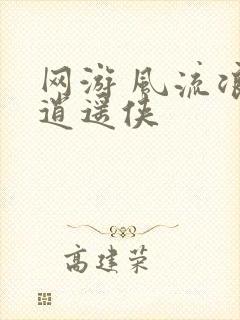 网游风流
逍遥侠
高建荣